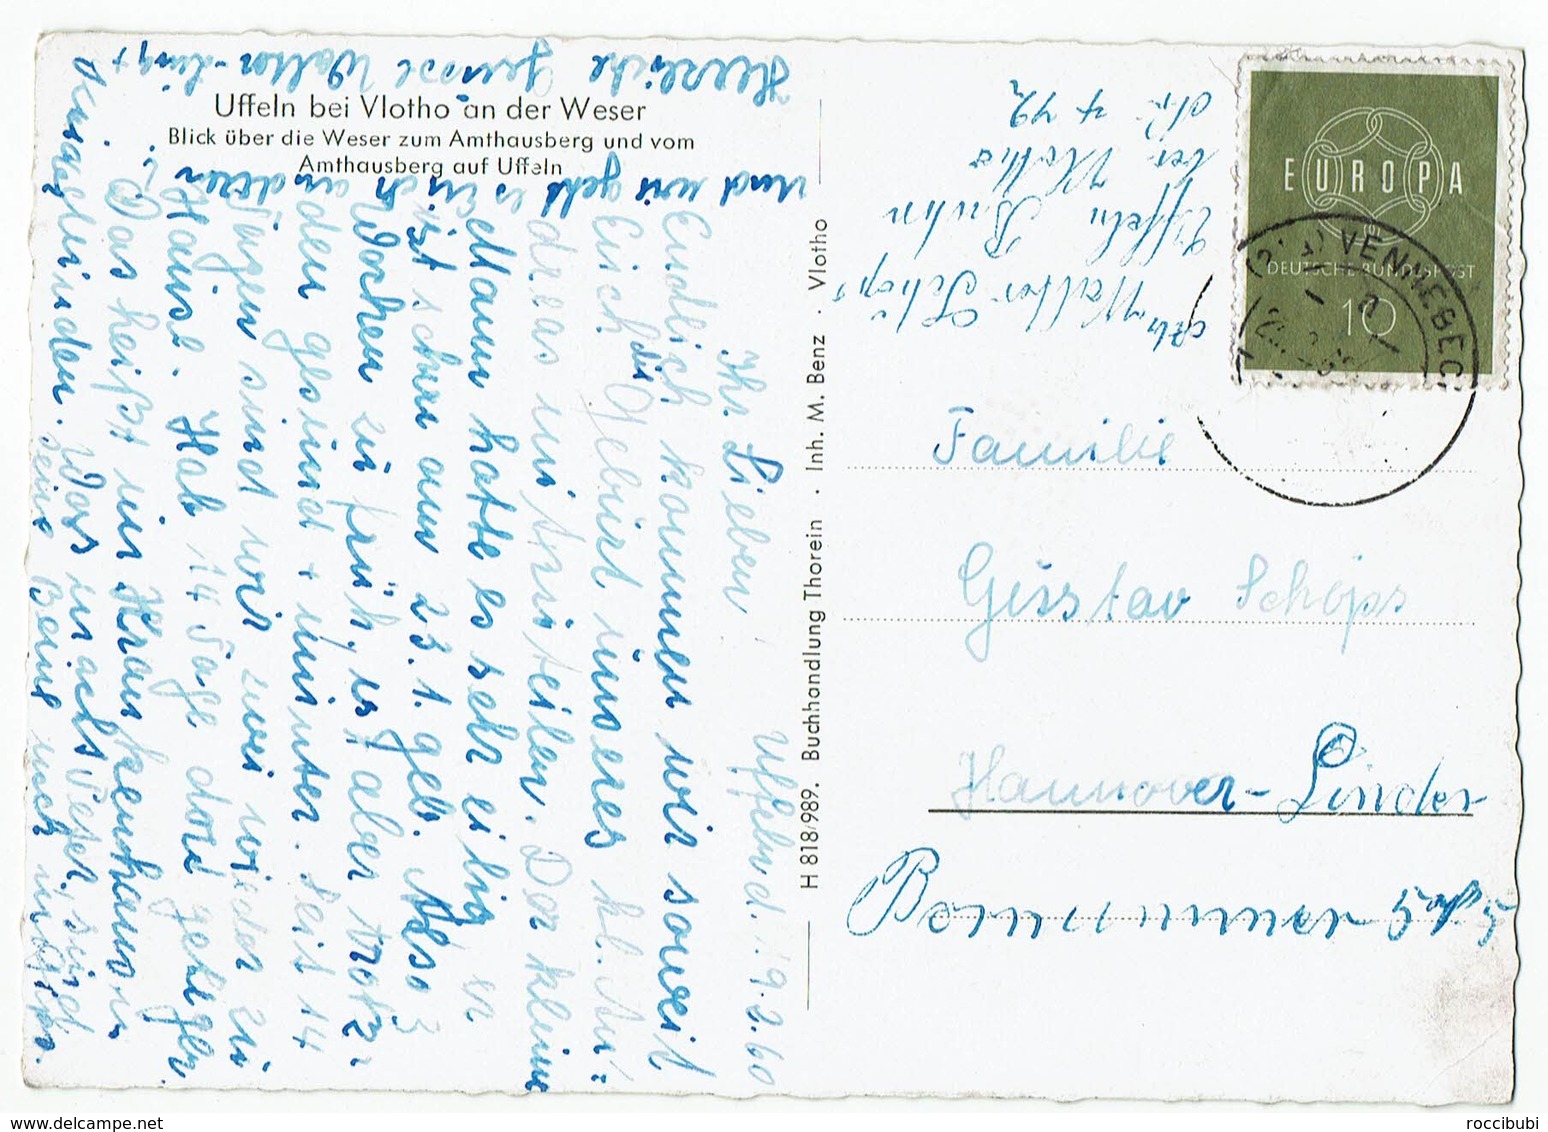 Herzliche Grüsse Walter
Uffeln bei Vlotho an der Weser
Blick über die Weser zum Amthausberg und vom
Amthausberg auf Uffeln
und wie geht es Euch anderen
Uffeln d. 19.2.60
Ihr Lieben!
Endlich kommen wir soweit
Euch die Geburt unseres kl. An-
dreas mitzuteilen. Der kleine
Mann hatte es sehr eilig er
ist schon am 23.1. geb. Also 3
Wochen zu früh, ist aber trotz-
dem gesund + munter. Seit 14
Tagen sind wir zwei wieder zu
Hause. Hab 14 Tage dort gelegen
Das heißt im Krankenhaus in
Minden. Was macht Peter, sind
seine Beine noch in Gips.
H 818/989. Buchhandlung Thorein · Inh. M. Benz · Vlotho
Walter Schöps
Uffeln
bei Vlotho
Nr. 472
EUROPA
DEUTSCHE BUNDESPOST
10
VENNEBECK
Familie
Gustav Schöps
Hannover-Linden
Bornummer
www.delcampe.net
roccibubi